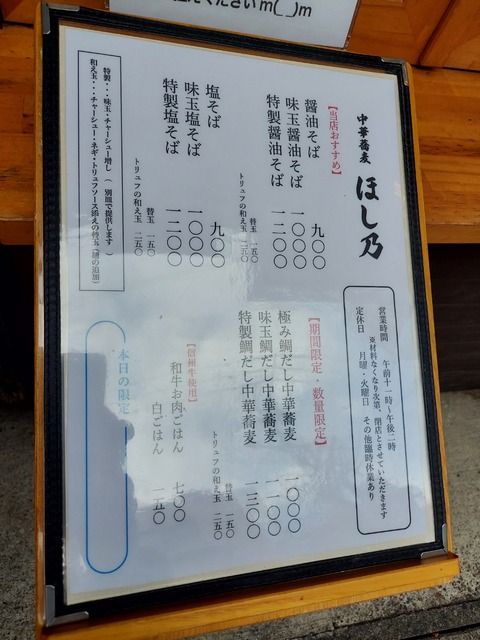 くださいm(_ _)m
中華蕎麦 ほし乃
【当店おすすめ】
醤油そば 九〇〇
味玉醤油そば 一〇〇〇
特製醤油そば 一二〇〇
替玉 一五〇
トリュフの和え玉 二五〇
塩そば 九〇〇
味玉塩そば 一〇〇〇
特製塩そば 一二〇〇
替玉 一五〇
トリュフの和え玉 二五〇
特製・・・味玉・チャーシュー増し（別皿で提供します）
和え玉・・・チャーシュー・ネギ・トリュフソース添えの替玉（麺の追加）
営業時間 午前十一時～午後二時
※材料なくなり次第、閉店とさせていただきます
定休日 月曜・火曜日 その他臨時休業あり
【期間限定・数量限定】
極み鯛だし中華蕎麦 一〇〇〇
味玉鯛だし中華蕎麦 一一〇〇
特製鯛だし中華蕎麦 一三〇〇
替玉 一五〇
トリュフの和え玉 二五〇
【信州牛使用】
和牛お肉ごはん 七〇〇
白ごはん 一五〇
本日の限定